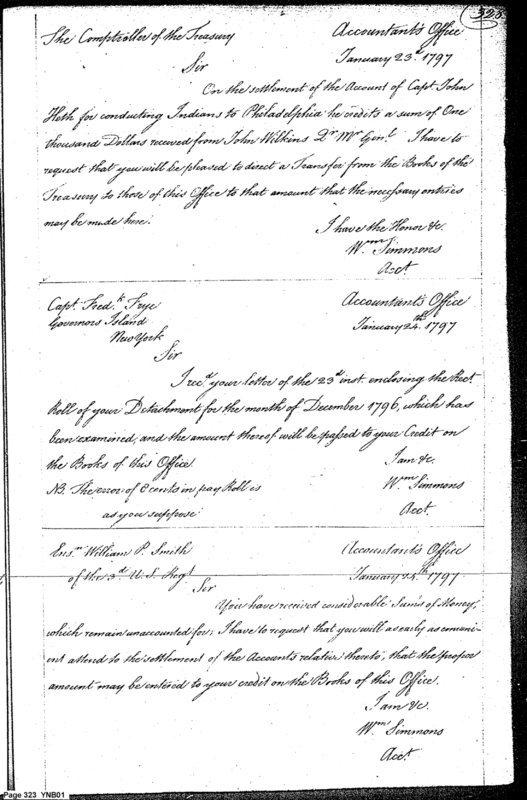 328
The Comptroller of the Treasury
Accountant's Office
January 23d 1797
Sir
On the settlement of the Account of Capt. John
Heth for conducting Indians to Philadelphia he credits a sum of One
thousand Dollars received from John Wilkins Qr Mr Genl. I have to
request that you will be pleased to direct a Transfer from the Books of the
Treasury to those of this Office to that amount that the necessary entries
may be made here.
I have the Honor &c.
Wm Simmons
Acct
Capt. Fred.k Frye
Governors Island
New York
Accountant's Office
January 24th 1797
Sir
I recd your letter of the 23d inst. enclosing the Rect.
Roll of your Detachment for the month of December 1796, which has
been examined, and the amount thereof will be passed to your Credit on
the Books of this Office.
I am &c.
NB. The error of 8 cents in pay Roll is
as you suppose
Wm Simmons
Acct.
Ensn William P. Smith
of the 3d U.S. Regt
Accountant's Office
January 24th 1797.
Sir
You have received considerable Sums of Money,
which remain unaccounted for; I have to request that you will as early as conveni-
ent attend to the settlement of the Accounts relative thereto, that the proper
amount may be entered to your credit on the Books of this Office.
I am &c.
Wm Simmons
Acct.
Page 323 YNB01